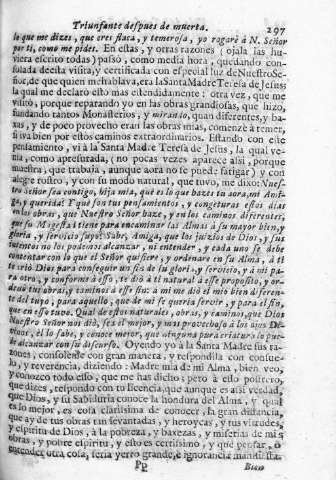 Triunfante despues de muerta. 297
lo que me dizes, que eres flaca, y temerosa, yo rogarè à N. Señor
por ti, como me pides. En estas, y otras razones (ojala las hu-
viera escrito todas) passò, como media hora, quedando con-
solada desta visita, y certificada con especial luz de Nuestro Se-
ñor, de que quien me hablava, era la Santa Madre Teresa de Jesus;
la qual me declarò esto mas estendidamente otra vez, que me
visitò, porque reparando yo en las obras grandiosas, que hizo,
fundando tantos Monasterios, y mirando, quan diferentes, y ba-
xas, y de poco provecho eran las obras mias, comencè à temer,
si iva bien por estos caminos extraordinarios. Estando con este
pensamiento, vi à la Santa Madre Teresa de Jesus, la qual ve-
nia, como apresurada, (no pocas vezes aparece assi, porque
muestra, que trabaja, aunque aora no se puede fatigar) y con
alegre rostro, y con su modo natural, que tuvo, me dixo: Nues-
tro Señor sea contigo, hija mia, què es lo que hazes tu aora, mi Ami-
ga, y querida? Què son tus pensamientos, y congeturas estos dias
en las obras, que Nuestro Señor haze, y en los caminos diferentes,
que su Magestad tiene para encaminar las Almas à su mayor bien,
gloria, y servicio suyo? Sabe, Amiga, que los juizios de Dios, y sus
cuentos no los podemos alcançar, ni entender, y cada uno se debe
contentar con lo que el Señor quisiere, y ordenare en su Alma, à ti
te criò Dios para conseguir un fin de su gloria, y servicio, y à mi pa-
ra otro, y conforme à esso, te diò à ti natural à esse proposito, y or-
denò tus obras, y caminos à esse fin: à mi me diò el mio bien diferen-
te del tuyo, para aquello, que de mi se queria servir, y para el fin,
que en esso tuvo. Qual de estos naturales, obras, y caminos, que Dios
Nuestro Señor nos diò, sea el mejor, y mas provechoso à los ojos Di-
vinos, èl lo sabe, y conoce mejor, que ninguna pura criatura lo pue-
de alcançar con su discurso. Oyendo yo à la Santa Madre sus ra-
zones, consolème con gran manera, y respondila con consue-
lo, y reverencia, diziendo: Madre mia de mi Alma, bien veo,
y conozco todo esso, que me has dicho; pero à esto postrero,
que dizes, respondo con tu licencia, que aunque es assi verdad,
que Dios, y su Sabiduria conoce la hondura del Alma, y qual
es lo mejor, es cosa clarissima de conocer, la gran distancia,
que ay de tus obras tan levantadas, y heroycas, y tus virtudes,
y espiritu de Dios, à la pobreza, y baxezas, y miserias de mis
obras, y pobre espiritu, y esto es certissimo, y que pensar, ò
entender otra cosa, seria yerro grande, è ignorancia manifiesta.
Pp Bien